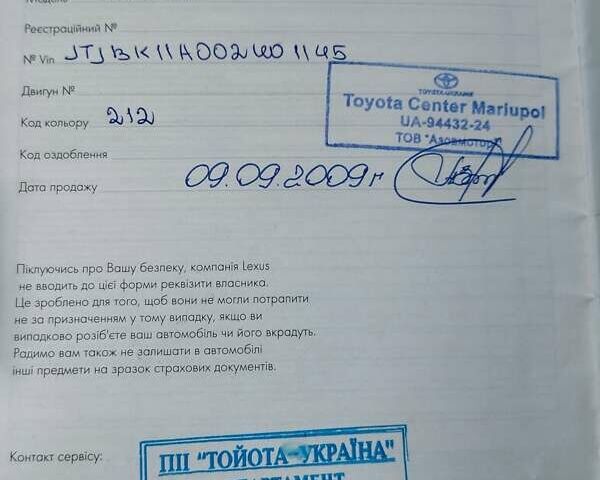 Реєстраційний №
№ Vin JTJBK11A002401145
TOYOTA-UKRAINE
Toyota Center Mariupol
UA-94432-24
ТОВ "Азовмотор"
Двигун №
Код кольору 212
Код оздоблення
Дата продажу 09.09.2009 г
Піклуючись про Вашу безпеку, компанія Lexus
не вводить до цієї форми реквізити власника.
Це зроблено для того, щоб вони не могли потрапити
не за призначенням у тому випадку, якщо ви
випадково розіб'єте ваш автомобіль чи його вкрадуть.
Радимо вам також не залишати в автомобілі
інші предмети на зразок страхових документів.
Контакт сервісу:
ПІІ "ТОЙОТА-УКРАЇНА"